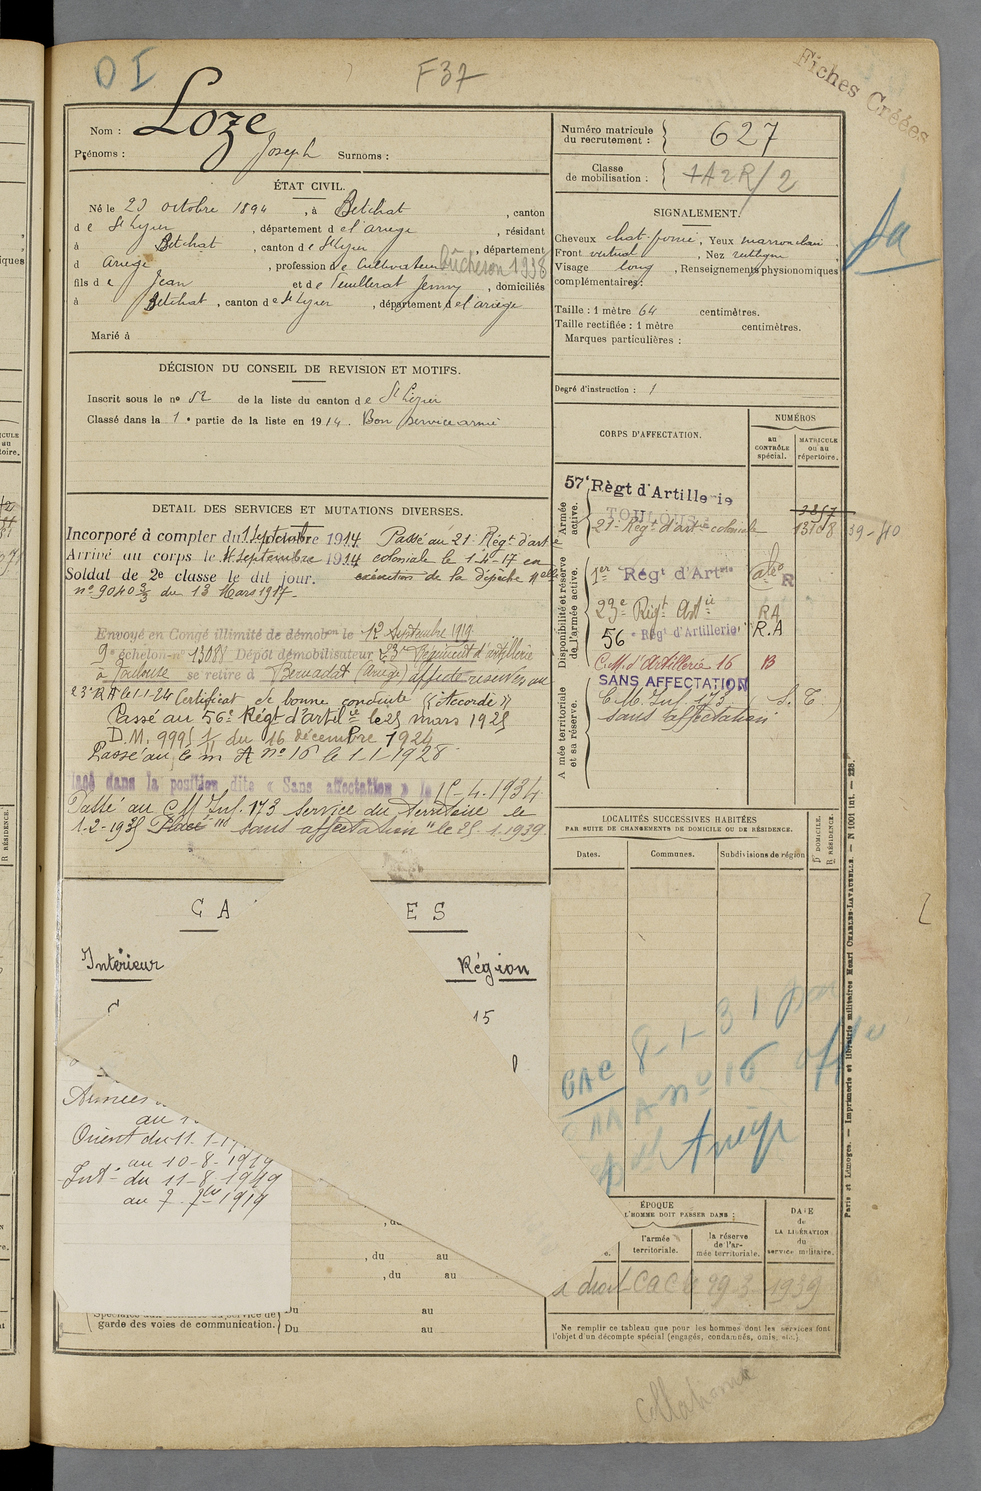 O I
F37
Fiches Créées
Nom : Loze
Prénoms : Joseph Surnoms :
ÉTAT CIVIL.
Né le 23 octobre 1894, à Betchat, canton
de St Lizier, département de l'ariege, résidant
à Betchat, canton de St Lizier, département
d ariege, profession de Cultivateur Bûcheron 1938
fils de Jean et de Jenny, domiciliés
à Betchat, canton de St Lizier, département de l'ariege
Marié à
DÉCISION DU CONSEIL DE REVISION ET MOTIFS.
Inscrit sous le n° 52 de la liste du canton de St Lizier
Classé dans la 1e partie de la liste en 1914. Bon service armé
DÉTAIL DES SERVICES ET MUTATIONS DIVERSES.
Incorporé à compter du 1914. Passé au 21e Régt d'artie
Arrivé au corps le 4 septembre 1914 coloniale le 1-4-17 en
Soldat de 2e classe le dit jour. exécution de la dépêche Melle
n° 9040 3/3 du 13 Mars 1917
Envoyé en Congé illimité de démobon le 12 Septembre 1919
9e échelon n° 13088 Dépôt démobilisateur 23e Régiment d'artillerie
à Toulouse se retire à (Ariège) affecté réserve au
23e RA le 1-1-24 Certificat de bonne conduite "Accordé"
Passé au 56e Régt d'artillie le 25 mars 1925
D.M. 9995 1/ du 16 décembre 1924
Passé au C M A n° 16 le 1-1-1928
Placé dans la position dite « Sans affectation » le 15-4-1934
Passé au CM Inf. 173 Service du Territoire le
1-2-1935 Placé "sans affectation" le 25.1.1939
CA ES
Intérieur Région
15
Armées
au
Orient du 11.1.17
au 10-8-1919
Intr du 11-8-1919
au 7 7bre 1919
, du au
, du au
garde des voies de communication. Du au
Du au
Numéro matricule du recrutement : 627
Classe de mobilisation : 1A2R/2
SIGNALEMENT.
Cheveux chat. foncé, Yeux marron clair,
Front vertical, Nez rectligne
Visage long, Renseignements physionomiques
complémentaires :
Taille : 1 mètre 64 centimètres.
Taille rectifiée : 1 mètre centimètres.
Marques particulières :
Degré d'instruction : 1
CORPS D'AFFECTATION.
NUMÉROS
au CONTRÔLE spécial.
MATRICULE ou au répertoire.
Armée active.
57e Règt d'Artillerie
TOULOUSE
21e Régt d'artie coloniale 13708 39-40
Disponibilité et réserve de l'armée active.
1er Régt d'Artie R
23e Régt Artie RA
56 Régt d'Artillerie R.A
C.M. d'Artillerie 16 B
SANS AFFECTATION
Armée territoriale et sa réserve.
C. M. Inf. 173 S. T.
sans affectation
LOCALITÉS SUCCESSIVES HABITÉES
PAR SUITE DE CHANGEMENTS DE DOMICILE OU DE RÉSIDENCE.
Dates. Communes. Subdivisions de région
D. DOMICILE.
R. RÉSIDENCE.
CAC 8-1-31
n° 16
Ariège
ÉPOQUE
L'HOMME DOIT PASSER DANS :
l'armée territoriale.
la réserve de l'armée territoriale.
DATE de LA LIBÉRATION du service militaire.
a droit CAC le 29-3-1939
Ne remplir ce tableau que pour les hommes dont les services font
l'objet d'un décompte spécial (engagés, condamnés, omis, etc.).
Paris et Limoges. — Imprimerie et librairie militaires Henri CHARLES-LAVAUZELLE. — N 1001 int. — 228.